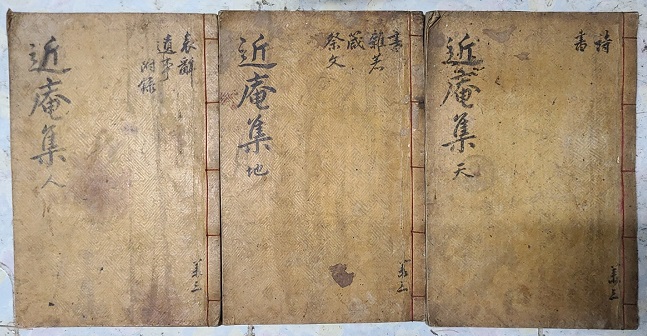 詩
書
共三
近庵集 天
書
雜著
箴
祭文
共三
近庵集 地
哀辭
遺事
附錄
共三
近庵集 人